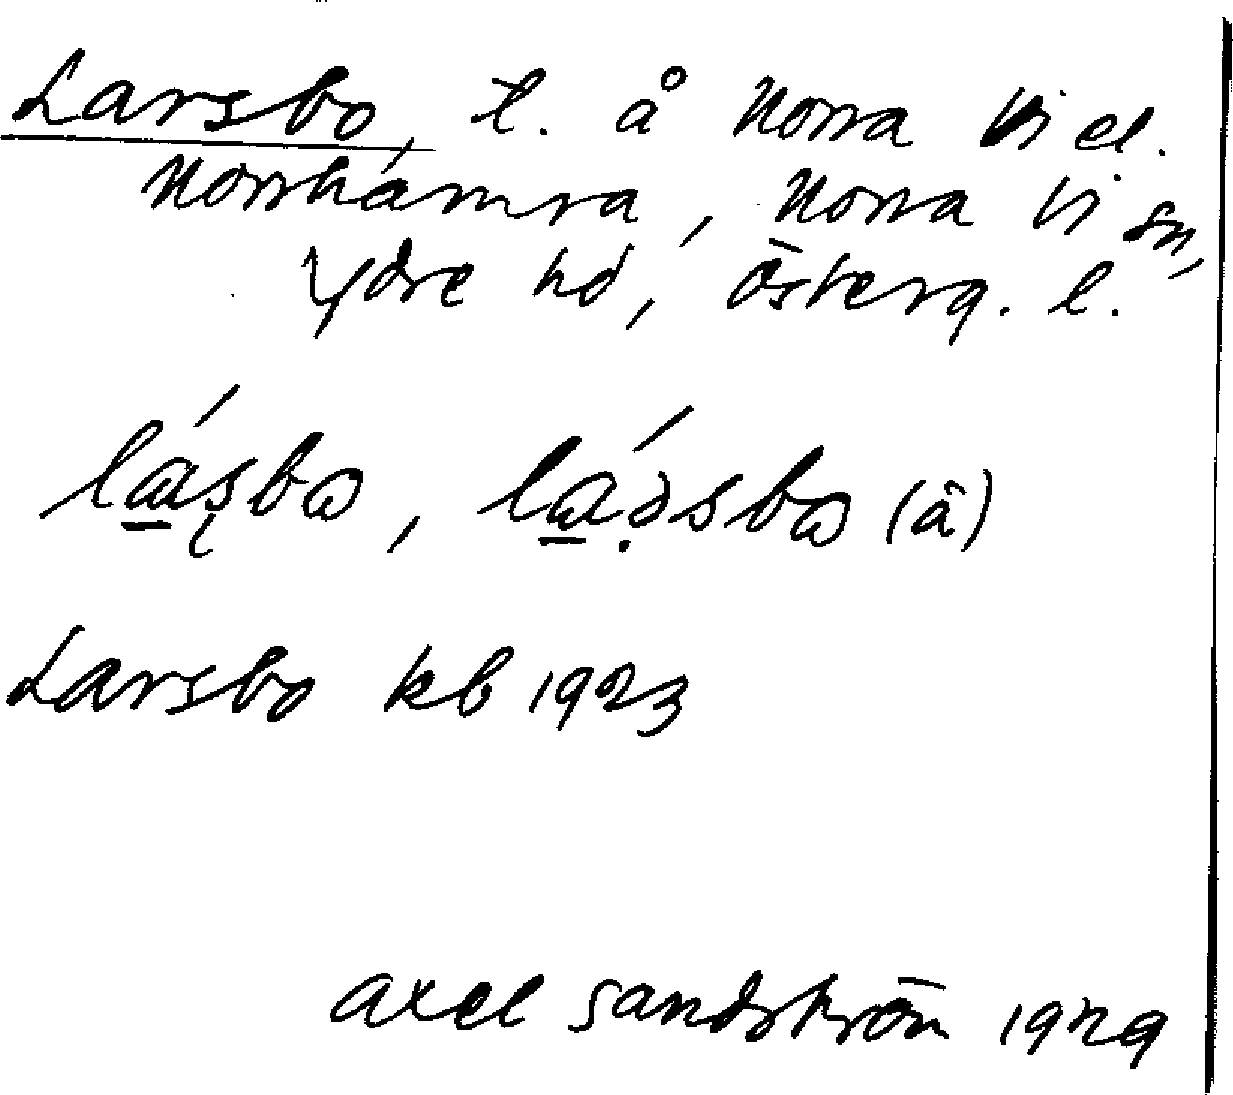 Larsbo, t. å Norra Vi el.
Norrhämra, Norra Vi sn,
Ydre hd, Österg. l.
lásbo, (â)
Larsbo kb 1923
Axel Sandström 1929